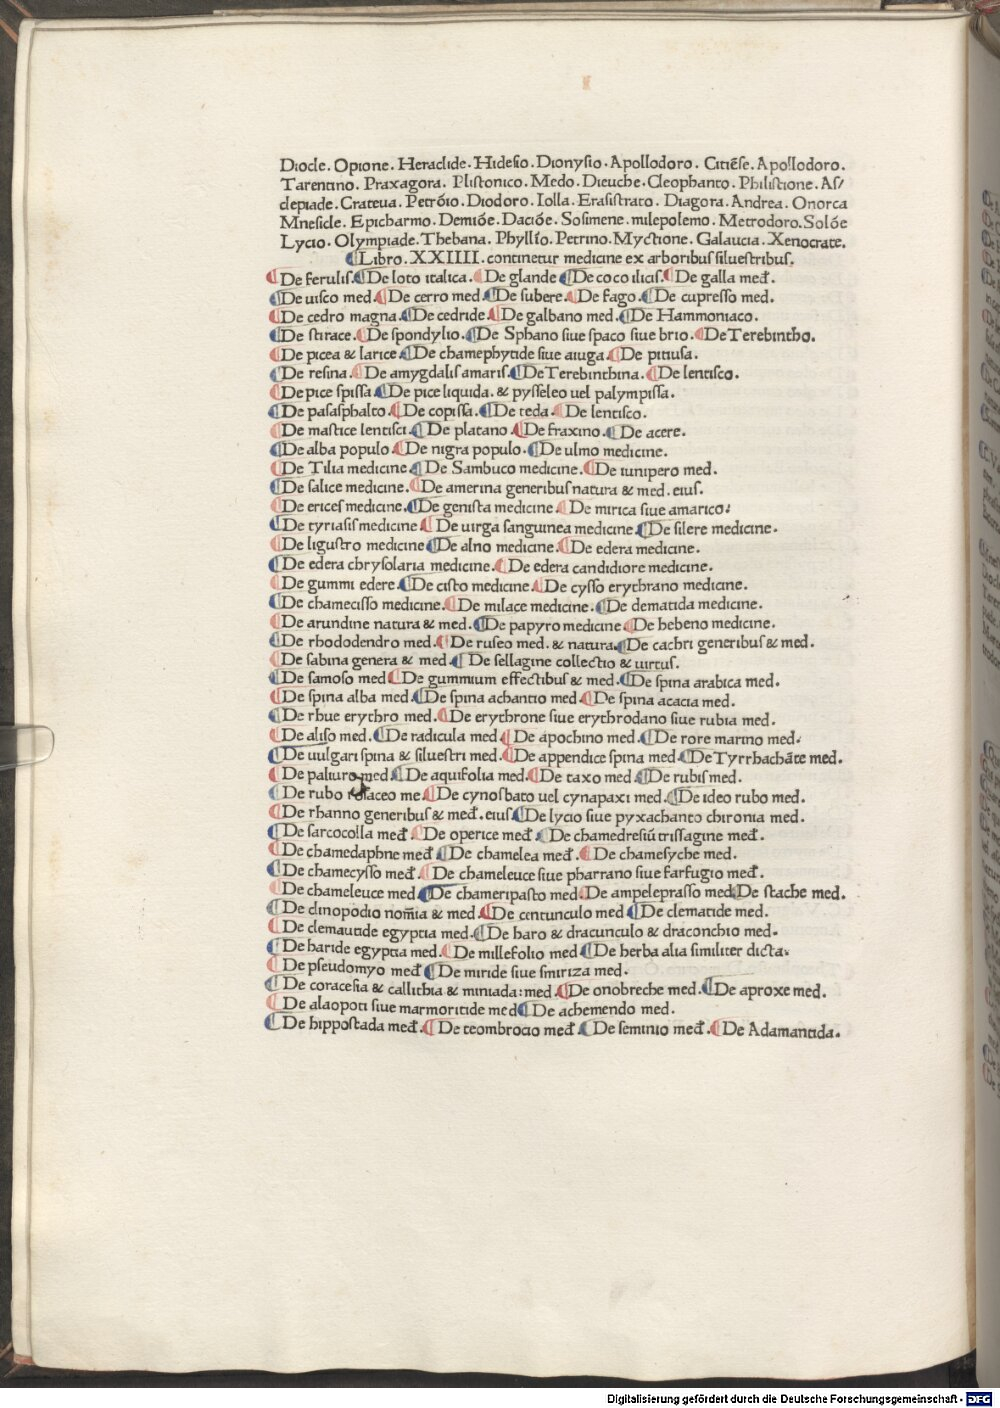 Diocle. Opione. Heraclide. Hidesio. Dionysio. Apollodoro. Citiẽse. Apollodoro.
Tarentino. Praxagora. Plistonico. Medo. Dieuche. Cleophanto. Philistione. As/
clepiade. Crateua. Petrõio. Diodoro. Iolla. Erasistrato. Diagora. Andrea. Onorca
Mnesicle. Epicharmo. Demiõe. Daciõe. Sosimene. milepolemo. Metrodoro. Solõe
Lycio. Olympiade. Thebana. Phyllĩo. Petrino. Myctione. Galaucia. Xenocrate.
Libro. XXIIII. continetur medicine ex arboribus siluestribus.
De ferulis. De loto italica. De glande De coco ilicis. De galla med.
De uisco med. De cerro med De subere. De fago. De cupresso med.
De cedro magna. De cedride. De galbano med. De Hammoniaco.
De stirace. De spondylio. De Sphano siue spaco siue brio. De Terebintho.
De picea & larice De chamephytide siue aiuga. De pitiusa.
De resina. De amygdalis amaris. De Terebinthina. De lentisco.
De pice spissa. De pice liquida. & pysseleo uel palympissa.
De pasasphalto. De copissa. De teda. De lentisco.
De mastice lentisci. De platano De fraxino. De acere.
De alba populo. De nigra populo. De ulmo medicine.
De Tilia medicine De Sambuco medicine. De iunipero med.
De salice medicine. De amerina generibus natura & med. eius.
De erices medicine. De genista medicine De mirica siue amarico:
De tyriasis medicine De uirga sanguinea medicine De silere medicine.
De ligustro medicine De alno medicine. De edera medicine.
De edera chrysolaria medicine. De edera candidiore medicine.
De gummi edere. De cisto medicine De cysso erythrano medicine.
De chamecisso medicine. De milace medicine. De dematida medicine.
De arundine natura & med. De papyro medicine De hebeno medicine.
De rhododendro med. De ruseo med. & natura. De cachri generibus & med.
De sabina genera & med. De sellagine collectio & uirtus.
De samoso med De gummium effectibus & med. De spina arabica med.
De spina alba med. De spina achantio med De spina acacia med.
De rhue erythro med. De erythrone siue erythrodano siue rubia med.
De aliso med. De radicula med. De apochino med. De rore marino med.
De uulgari spina & siluestri med. De appendice spina med De Tyrrhachãte med.
De paliuro med. De aquifolia med. De taxo med De rubis med.
De rubo rosaceo me. De cynosbato uel cynapaxi med. De ideo rubo med.
De rhanno generibus & med. eius De lycio siue pyxachanto chironia med.
De sarcocolla med. De operice med. De chamedresiũ trissagine med.
De chamedaphne med De chamelea med. De chamesyche med.
De chamecysso med. De chameleuce siue pharrano siue farfugio med.
De chameleuce med De chameripasto med. De ampeleprasso med. De stache med.
De clinopodio nom̃ia & med De centunculo med De clematide med.
De clemautide egyptia med. De haro & dracunculo & draconchio med.
De haride egyptia med. De millefolio med De herba alia similiter dicta.
De pseudomyo med De miride siue smiriza med.
De coracesia & callithia & miniada: med. De onobreche med. De aproxe med.
De alaopoti siue marmoritide med De achemendo med.
De hippostada med. De teombrocio med De seminio med. De Adamantida.
Digitalisierung gefördert durch die Deutsche Forschungsgemeinschaft - DFG